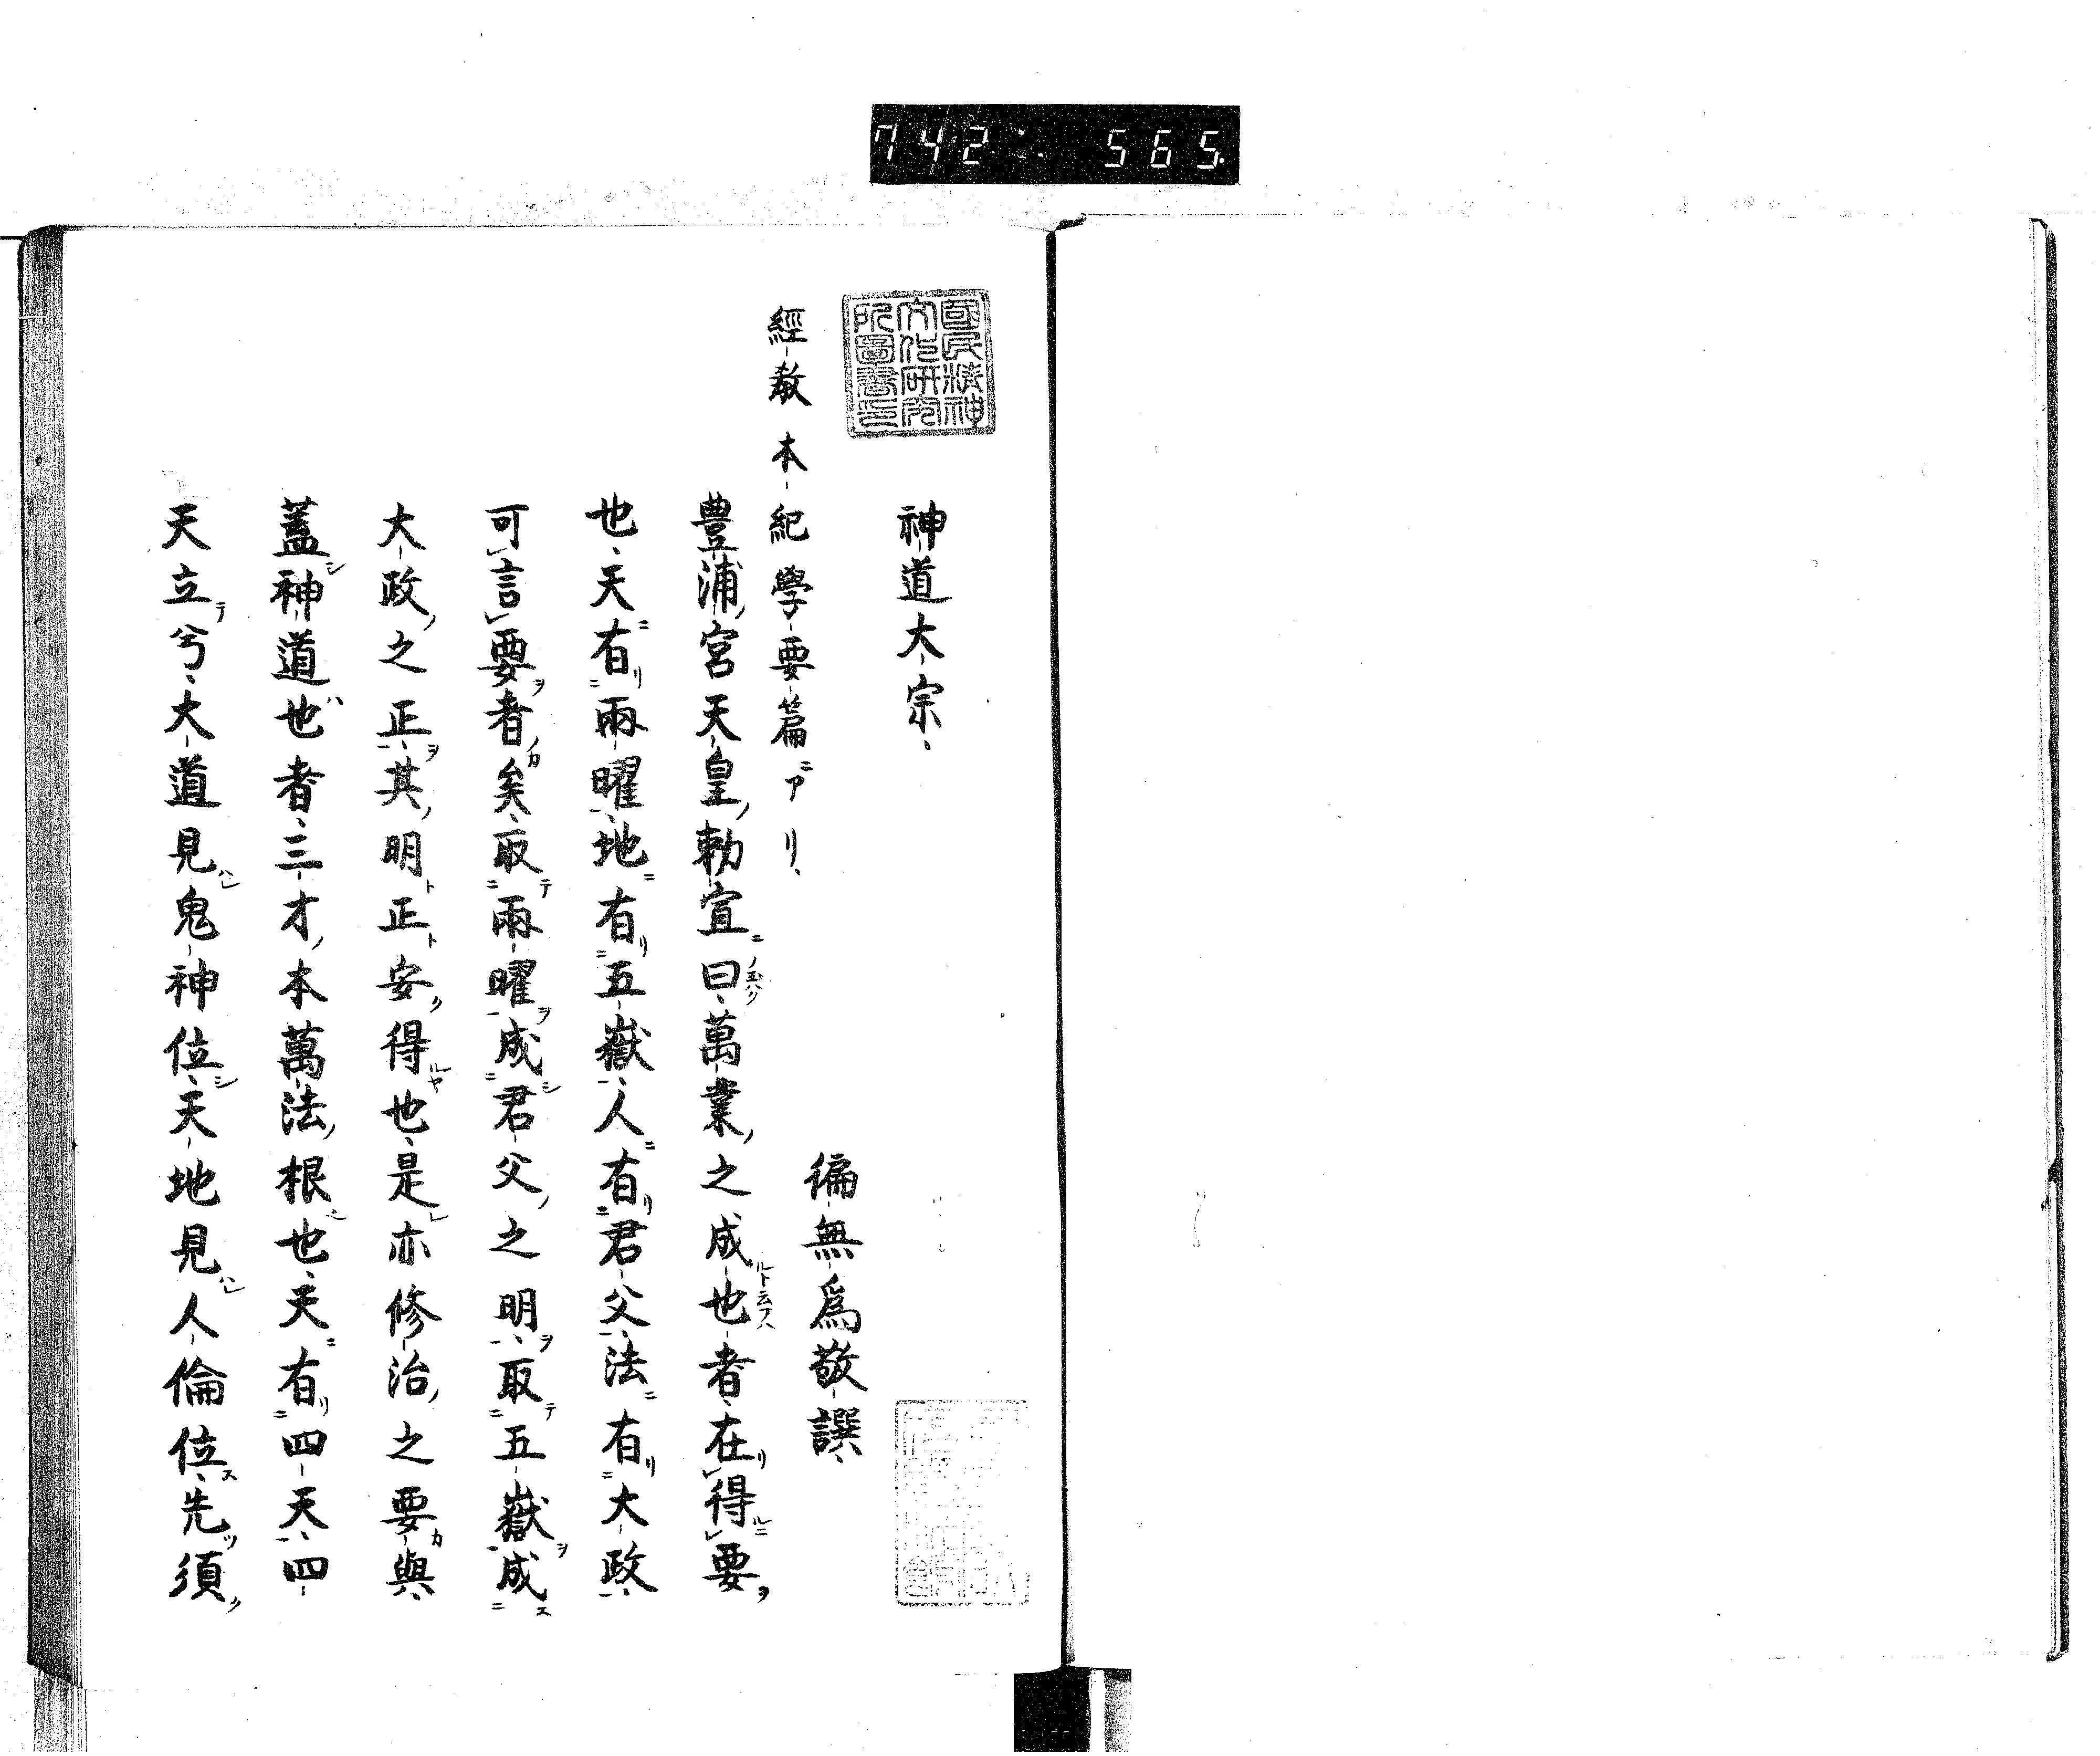 742 565
國民精神
文化研究
所圖書印
神道大宗、
徧無為敬譔、
經教本紀學要篇ニアリ、
豊浦宮天皇勅宣曰萬業之成也者在得要
也天有兩曜地有五嶽人有君父法有大政
可言要者矣取兩曜成君父之明取五嶽成
大政之正其明正安得也是亦修治之要與
蓋神道也者三才本萬法根也天有四天四
天立兮大道見鬼神位天地見人倫位先須